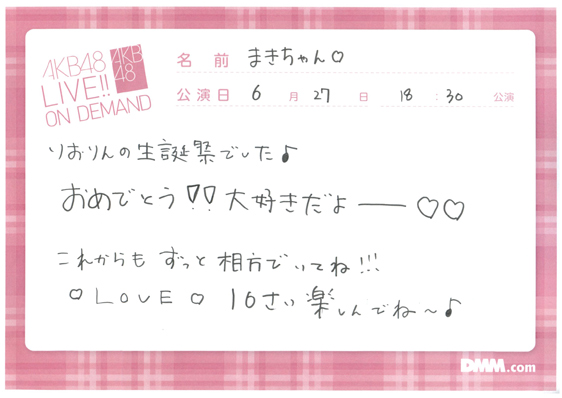 AKB48
LIVE!!
ON DEMAND
AKB
48
名前 まきちゃん♡
公演日 6月27日 18:30公演
りおりんの生誕祭でした♪
おめでとう!! 大好きだよ──♡♡
これからも ずっと 相方でいてね!!!
♡LOVE♡ 16さい楽しんでね〜♪
DMM.com